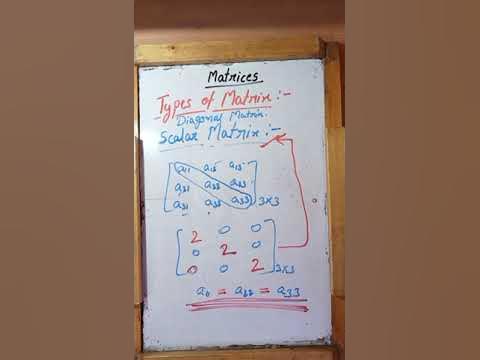 Matrices
Types of Matrix :-
Diagonal Matrix
Scalar Matrix :-
a11 a12 a13
a21 a22 a23
a31 a32 a33 3x3
2 0 0
0 2 0
0 0 2 3x3
a11 = a22 = a33